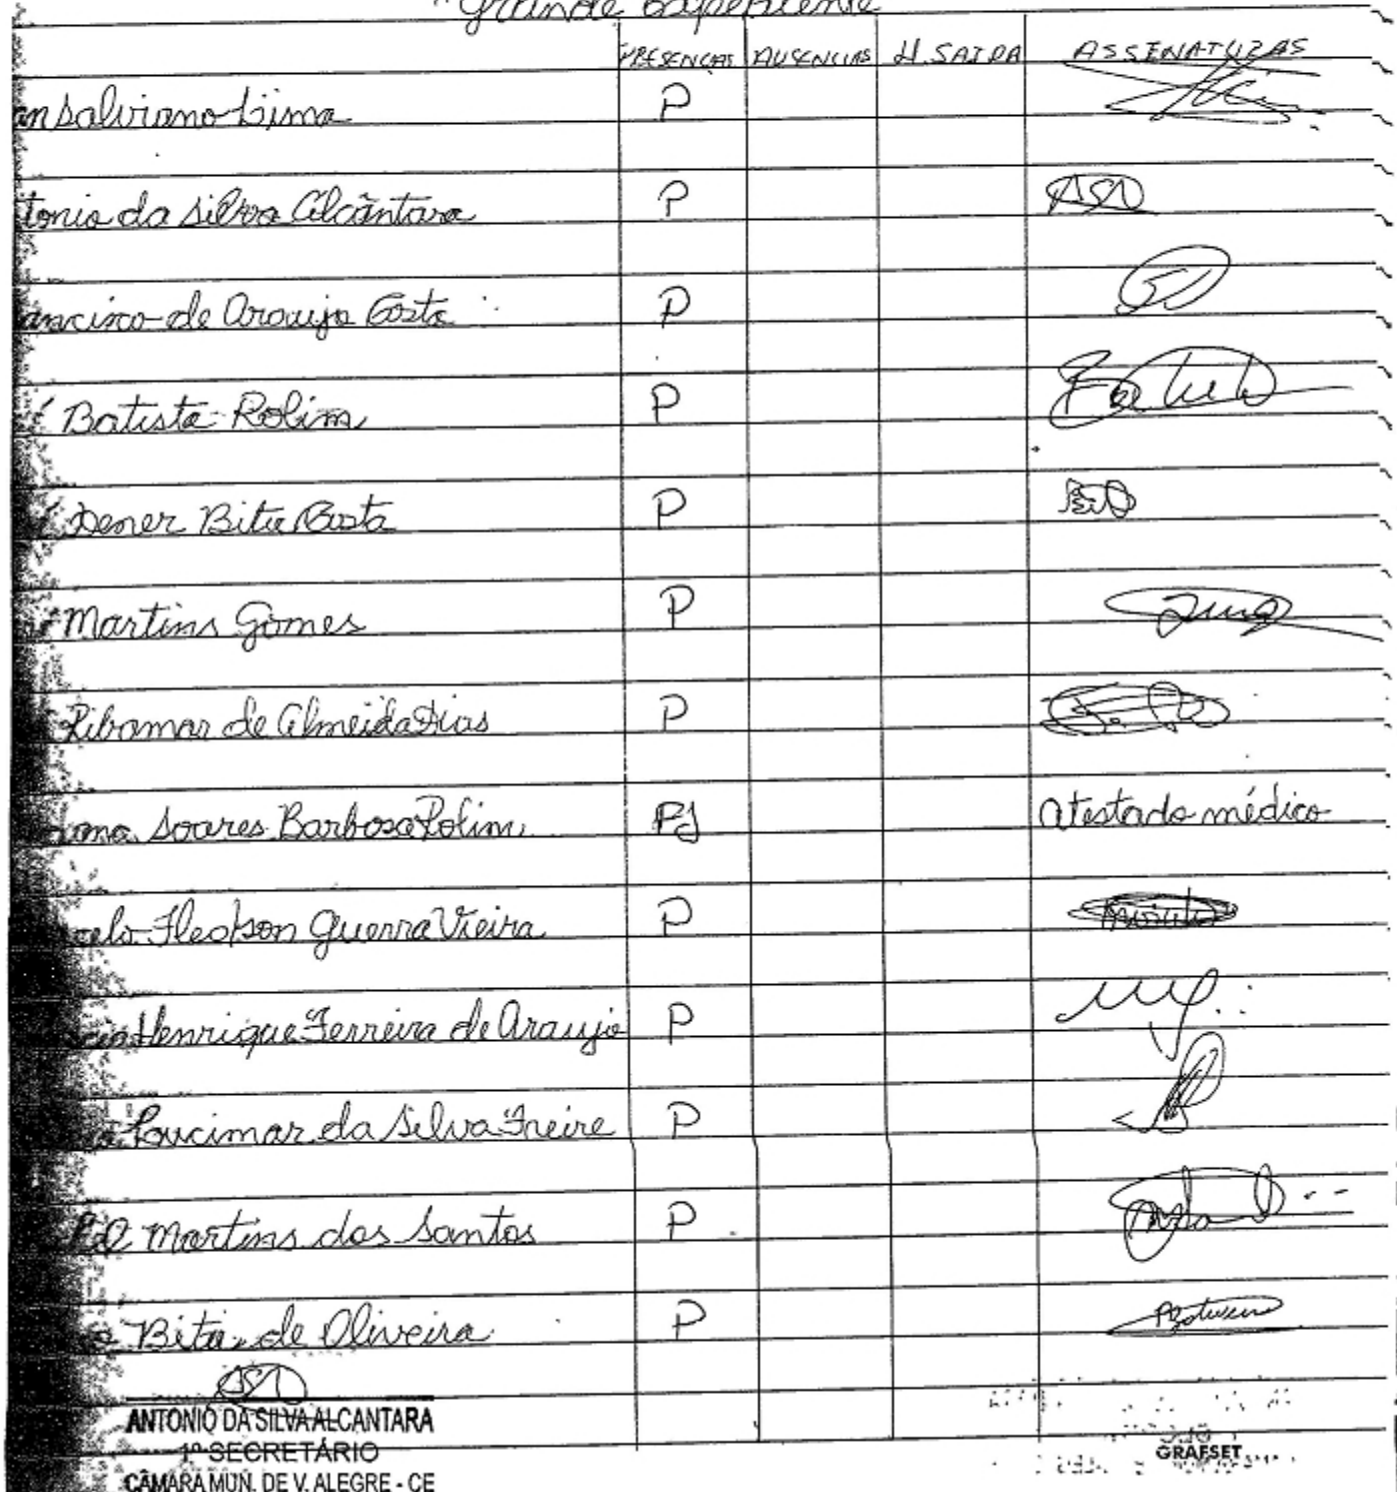 "Grande Expediente
PRESENÇAS AUSENCIAS H. SAIDA ASSINATURAS
an Salviano Lima P
tonio da Silva Alcântara P ASA
ancisco de Araujo Costa P
é Batista Rolim P Batista
é Dener Bitu Costa P
é Martins Gomes P
Ribamar de Almeida Dias P
Soares Barbosa Rolim FJ Atestado médico
celo Fledson Guerra Vieira P
cio Henrique Ferreira de Araujo P
Loucimar da Silva Freire P
el Martins dos Santos P
Bitu de Oliveira P
ASA
ANTONIO DA SILVA ALCANTARA
1º SECRETÁRIO
CÂMARA MUN. DE V. ALEGRE - CE
GRAFSET